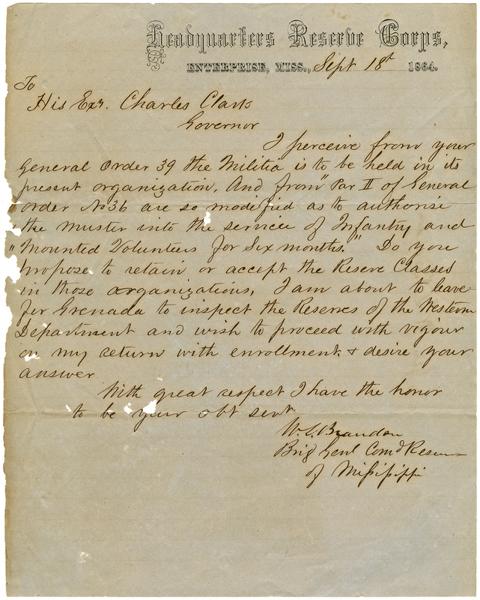 Headquarters Reserve Corps,
ENTERPRISE, MISS., Sept 18t 1864.
To
His Exc. Charles Clark
Governor
I perceive from your
General Order 39 the Militia is to be held in its
present organization. And from "Par II of General
order No 36 are so modified as to authorise
the muster into the service of Infantry and
"Mounted Volunteers for Six months." Do you
propose to retain or accept the Reserve Classes
in those organizations, I am about to leave
for Grenada to inspect the Reserves of the Western
Department and wish to proceed with vigour
on my return with enrollment & desire your
answer
With great respect I have the honor
to be your obt servt
W. L. Brandon
Brig Genl Comd Reserves
of Mississippi